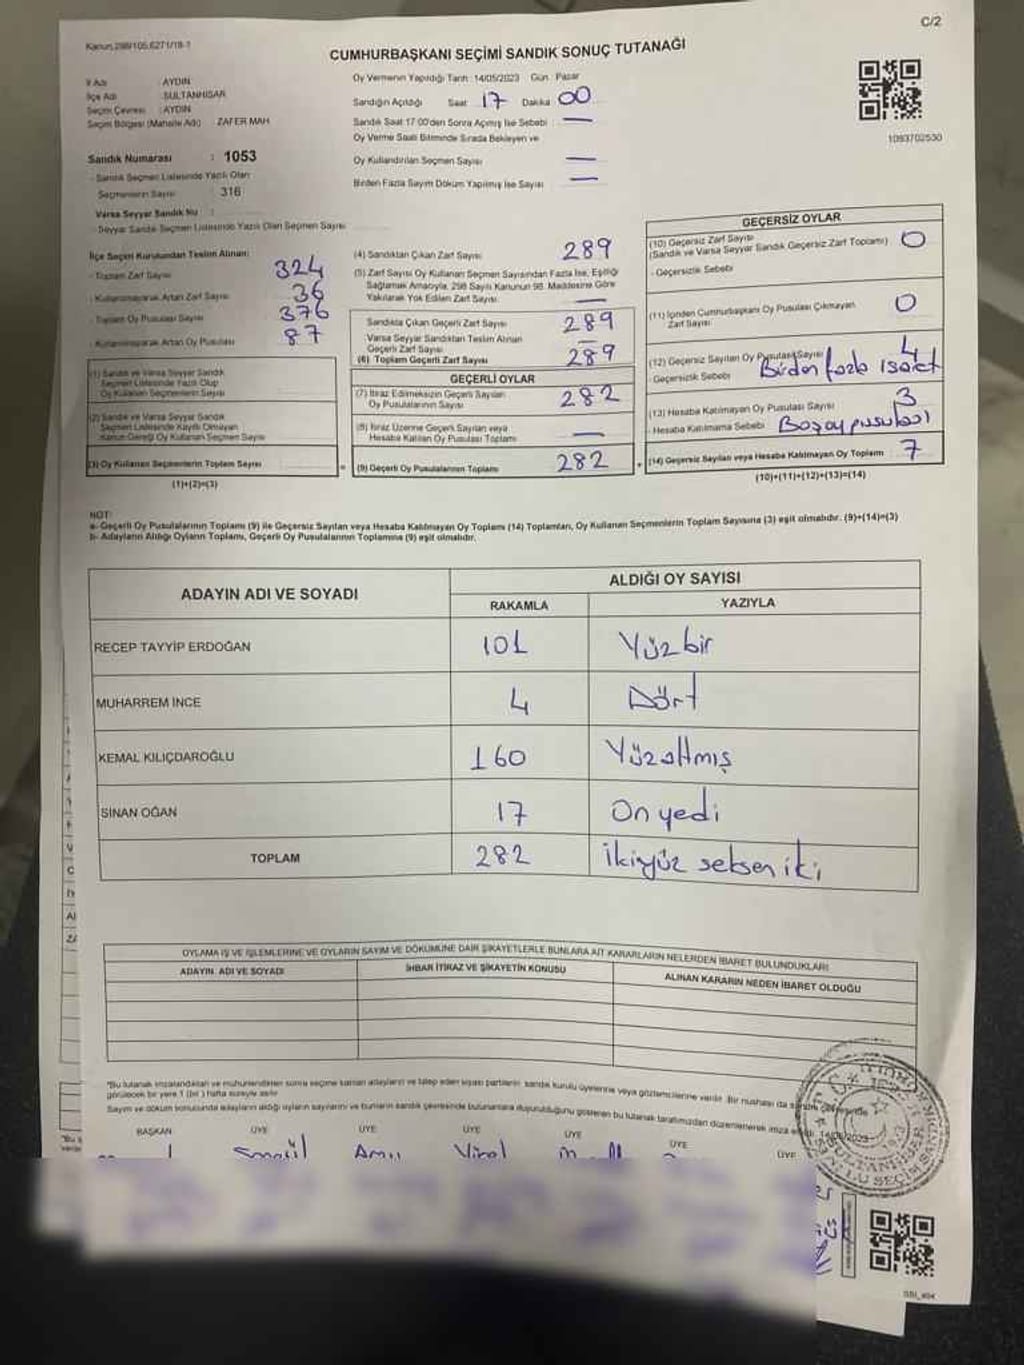 C/2
Kanun.298/105,6271/18-1
CUMHURBAŞKANI SEÇİMİ SANDIK SONUÇ TUTANAĞI
İl Adı : AYDIN
İlçe Adı : SULTANHİSAR
Seçim Çevresi : AYDIN
Seçim Bölgesi (Mahalle Adı) : ZAFER MAH
Sandık Numarası : 1053
- Sandık Seçmen Listesinde Yazılı Olan
Seçmenlerin Sayısı : 316
Varsa Seyyar Sandık No :
- Seyyar Sandık Seçmen Listesinde Yazılı Olan Seçmen Sayısı
Oy Vermenin Yapıldığı Tarih : 14/05/2023 Gün : Pazar
Sandığın Açıldığı Saat 17 Dakika 00
Sandık Saat 17:00'den Sonra Açılmış İse Sebebi —
Oy Verme Saati Bitiminde Sırada Bekleyen ve
Oy Kullandırılan Seçmen Sayısı —
Birden Fazla Sayım Döküm Yapılmış İse Sayısı —
1093702530
İlçe Seçim Kurulundan Teslim Alınan:
- Toplam Zarf Sayısı 324
- Kullanılmayarak Artan Zarf Sayısı 36
- Toplam Oy Pusulası Sayısı 376
- Kullanılmayarak Artan Oy Pusulası 87
(1) Sandık ve Varsa Seyyar Sandık
Seçmen Listesinde Yazılı Olup
Oy Kullanan Seçmen Sayısı
(2) Sandık ve Varsa Seyyar Sandık
Seçmen Listesinde Kayıtlı Olmayan
Kanun Gereği Oy Kullanan Seçmen Sayısı
(3) Oy Kullanan Seçmenlerin Toplam Sayısı
(1)+(2)=(3)
(4) Sandıktan Çıkan Zarf Sayısı 289
(5) Zarf Sayısı Oy Kullanan Seçmen Sayısından Fazla İse, Eşitliği
Sağlamak Amacıyla, 298 Sayılı Kanunun 98. Maddesine Göre
Yakılarak Yok Edilen Zarf Sayısı —
Sandıkta Çıkan Geçerli Zarf Sayısı 289
Varsa Seyyar Sandıktan Teslim Alınan
Geçerli Zarf Sayısı —
(6) Toplam Geçerli Zarf Sayısı 289
GEÇERLİ OYLAR
(7) İtiraz Edilmeksizin Geçerli Sayılan
Oy Pusulalarının Sayısı 282
(8) İtiraz Üzerine Geçerli Sayılan veya
Hesaba Katılan Oy Pusulası Toplamı —
= (9) Geçerli Oy Pusulalarının Toplamı 282 +
GEÇERSİZ OYLAR
(10) Geçersiz Zarf Sayısı
(Sandık ve Varsa Seyyar Sandık Geçersiz Zarf Toplamı) 0
- Geçersizlik Sebebi
(11) İçinden Cumhurbaşkanı Oy Pusulası Çıkmayan
Zarf Sayısı 0
(12) Geçersiz Sayılan Oy Pusulası Sayısı 4
- Geçersizlik Sebebi Birden fazla işaret
(13) Hesaba Katılmayan Oy Pusulası Sayısı 3
- Hesaba Katılmama Sebebi Boş oy pusulası
(14) Geçersiz Sayılan veya Hesaba Katılmayan Oy Toplamı 7
(10)+(11)+(12)+(13)=(14)
NOT:
a- Geçerli Oy Pusulalarının Toplamı (9) ile Geçersiz Sayılan veya Hesaba Katılmayan Oy Toplamı (14) Toplamları, Oy Kullanan Seçmenlerin Toplam Sayısına (3) eşit olmalıdır. (9)+(14)=(3)
b- Adayların Aldığı Oyların Toplamı, Geçerli Oy Pusulalarının Toplamına (9) eşit olmalıdır.
ADAYIN ADI VE SOYADI
ALDIĞI OY SAYISI
RAKAMLA YAZIYLA
RECEP TAYYİP ERDOĞAN 101 Yüzbir
MUHARREM İNCE 4 Dört
KEMAL KILIÇDAROĞLU 160 Yüzaltmış
SİNAN OĞAN 17 On yedi
TOPLAM 282 İkiyüz seksen iki
OYLAMA İŞ VE İŞLEMLERİNE VE OYLARIN SAYIM VE DÖKÜMÜNE DAİR ŞİKAYETLERLE BUNLARA AİT KARARLARIN NELERDEN İBARET BULUNDUKLARI
ADAYIN ADI VE SOYADI İHBAR İTİRAZ VE ŞİKAYETİN KONUSU ALINAN KARARIN NEDEN İBARET OLDUĞU
*Bu tutanak imzalandıktan ve mühürlendikten sonra seçime katılan adayların ve talep eden siyasi partilerin sandık kurulu üyelerine veya gözlemcilerine verilir. Bir nüshası da sandık çevresinde
görülecek bir yere 1 (bir) hafta süreyle asılır
Sayım ve döküm sonucunda adayların aldığı oyların sayılarını ve bunların sandık çevresinde bulunanlara duyurulduğunu gösteren bu tutanak tarafımızdan düzenlenerek imza edildi. 14/05/2023
BAŞKAN ÜYE ÜYE ÜYE ÜYE ÜYE ÜYE